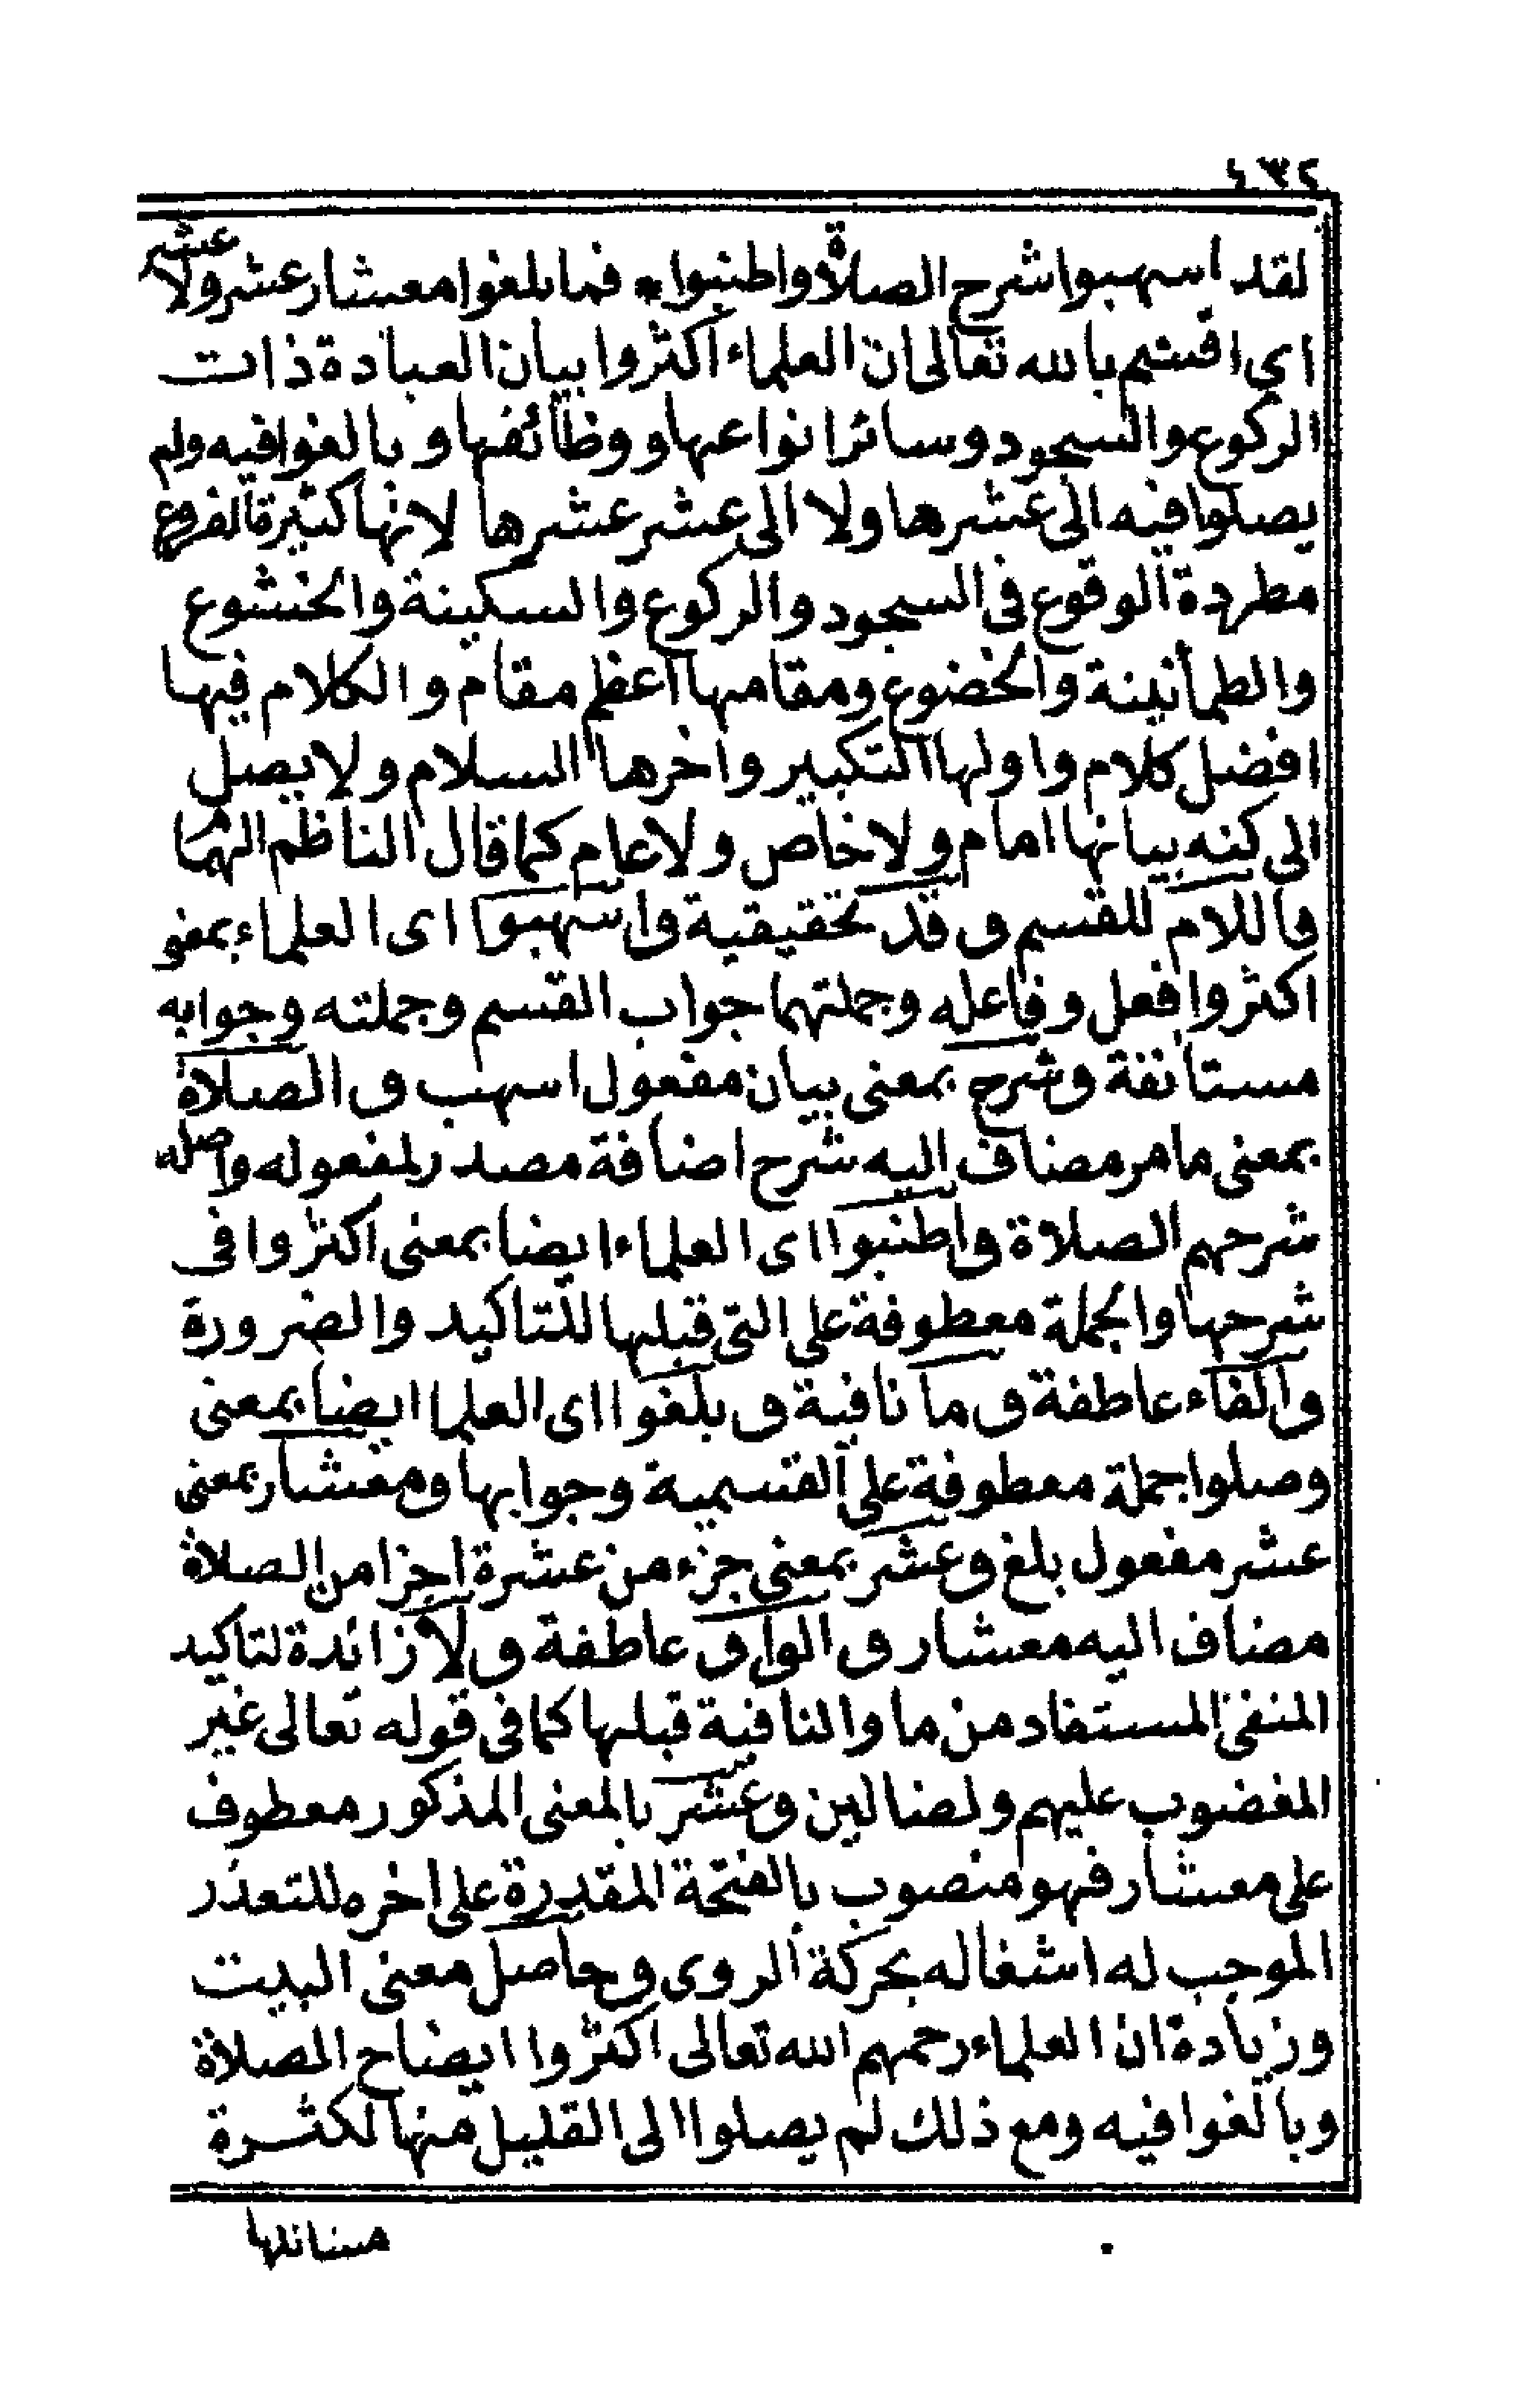 ٤٣٢
لقد اسهبوا شرح الصلاة واطنبوا * فما بلغوا معشار عشر ولا عشر
اي اقسم بالله تعالى ان العلماء اكثروا بيان العبادة ذات
الركوع والسجود وسائر انواعها ووظائفها وبالغوا فيه ولم
يصلوا فيه الى عشرها ولا الى عشر عشرها لانها كثيرة الفروع
مطردة الوقوع في السجود والركوع والسكينة والخشوع
والطمأنينة والخضوع ومقامها اعظم مقام والكلام فيها
افضل كلام واولها التكبير واخرها السلام ولا يصل
الى كنه بيانها امام ولا خاص ولا عام كما قال الناظم الهمام
فاللام للقسم و قد تحقيقية واسهبوا اى العلماء بمعنى
اكثروا فعل وفاعله وجملتهما جواب القسم وجملته وجوابه
مستأنفة وشرح بمعنى بيان مفعول اسهب و الصلاة
بمعنى ما مر مضاف اليه شرح اضافة مصدر لمفعوله واصله
شرحهم الصلاة واطنبوا اى العلماء ايضا بمعنى اكثروا في
شرحها والجملة معطوفة على التي قبلها للتاكيد والضرورة
والفاء عاطفة و ما نافية و بلغوا اى العلما ايضا بمعنى
وصلوا جملة معطوفة على القسمية وجوابها ومعشار بمعنى
عشر مفعول بلغ وعشر بمعنى جزء من عشرة اجزا من الصلاة
مضاف اليه معشار و الواو عاطفة و لا زائدة لتاكيد
المنفى المستفاد من ما والنافية قبلها كما في قوله تعالى غير
المغضوب عليهم ولضالين وعشر بالمعنى المذكور معطوف
على معشار فهو منصوب بالفتحة المقدرة على اخره للتعذر
الموجب له اشغاله بحركة الروى وحاصل معنى البيت
وزيادة ان العلماء رحمهم الله تعالى اكثروا ايضاح الصلاة
وبالغوا فيه ومع ذلك لم يصلوا الى القليل منها لكثرة
مسائلها